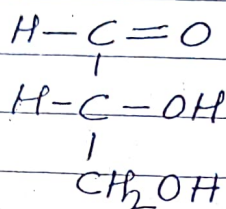 H-C=O
|
H-C-OH
|
CH₂OH